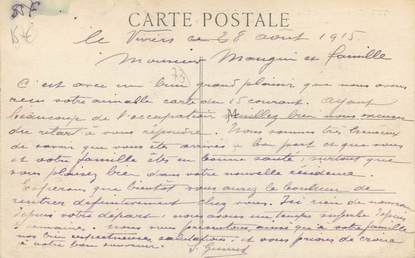 85F
CARTE POSTALE
le Viviers ce 28 août 1915
Monsieur Mangin et famille
C'est avec un bien grand plaisir que nous avons
recu votre aimable carte du 15 courant. Ayant
beaucoup de l'occupation Veuillez bien nous excuser
du retart à vous répondre. Nous sommes très heureux
de savoir que vous êtes arrivés à bon port et que vous
et votre famille êtes en bonne santé, surtout que
vous plaisez bien dans votre nouvelle résidence.
Esperons que bientôt vous aurez le bonheur de
rentrer définitivement chez vous. Ici rien de nouveau
depuis votre départ; nous avons un temps superbe depuis
1 semaine. Nous vous présentons ainsi qu'à votre famille
nos bien respectueuses salutations et vous prions de croire
à notre bon souvenir.